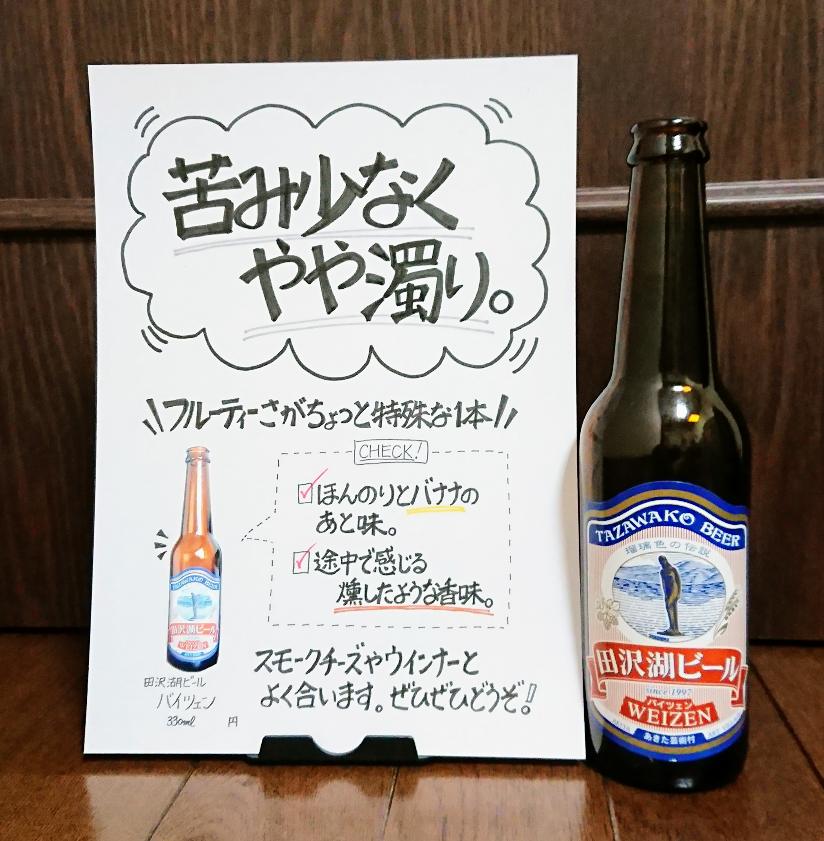 苦み少なく
やや濁り。
フルーティーさがちょっと特殊な1本
CHECK!
ほんのりとバナナの
あと味。
途中で感じる
燻したような香味。
スモークチーズやウインナーと
よく合います。ぜひぜひどうぞ!
TAZAWAKO BEER
田沢湖ビール
WEIZEN
田沢湖ビール
バイツェン
330ml 円
TAZAWAKO BEER
瑠璃色の伝説
田沢湖ビール
since 1997
バイツェン
WEIZEN
あきた芸術村